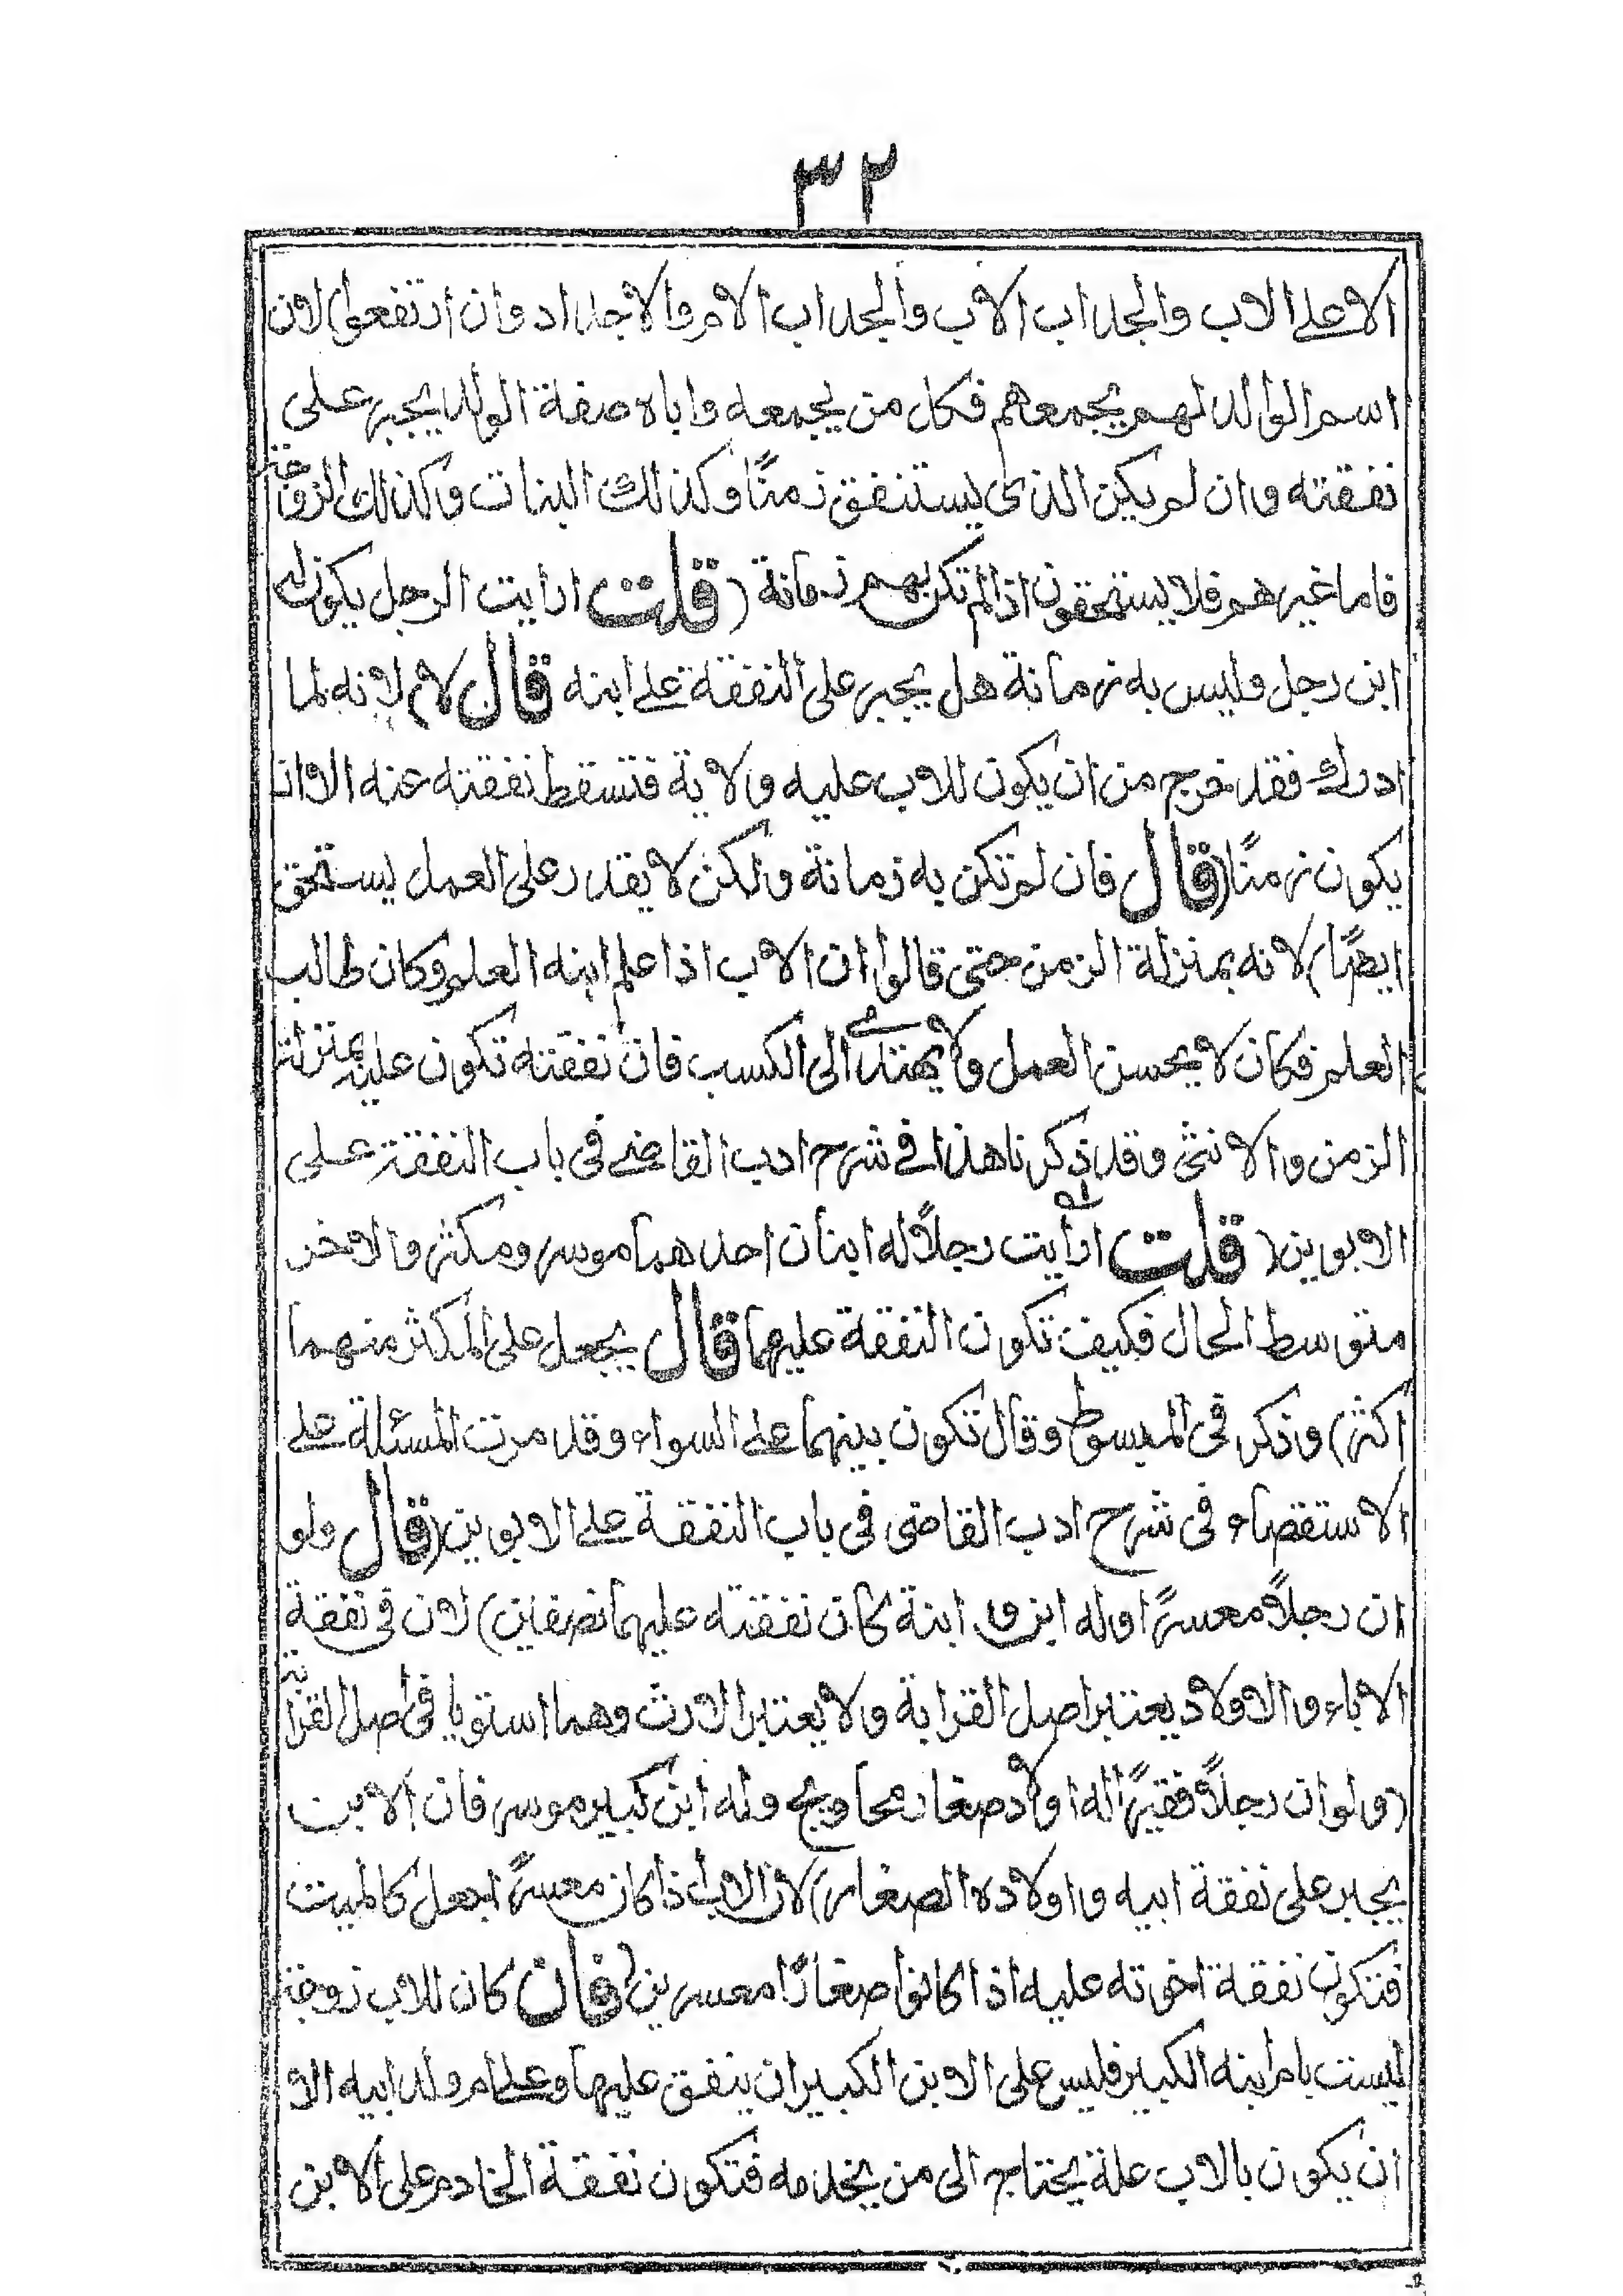 ٣٢
الاعلى الاب والجد اب الاب والجد اب الام والاجداد وان ارتفعوا) لان
اسم الوالد لهم يجمعهم فكل من يجمعه واباه صفة الولد يجبر على
نفقته وان لم يكن الذى يستنفق زمنًا وكذلك البنات وكذلك الزوجة
فاما غيرهم فلا يستحقون اذا لم تكن بهم زمانة (قلت ارايت الرجل يكون له
ابن رجل وليس به زمانة هل يجبر على النفقة على ابنه قال لا) لانه لما
ادرك فقد خرج من ان يكون للاب عليه ولاية فتسقط نفقته عنه الا ان
يكون زمنًا (قال فان لم تكن به زمانة ولكن لا يقدر على العمل يستحق
ايضًا) لانه بمنزلة الزمن حتى قالوا ان الاب اذا علم ابنه العلم وكان طالب
العلم فكان لا يحسن العمل ولا يهتدى الى الكسب فان نفقته تكون عليه بمنزلة
الزمن والانثى وقد ذكرنا هذا فى شرح ادب القاضى فى باب النفقة على
الابوين (قلت ارأيت رجلاً له ابنان احدهما موسر ومكثر والاخر
متوسط الحال فكيف تكون النفقة عليهما قال يجعل على المكثر منهما
اكثر) وذكر فى المبسوط وقال تكون بينهما على السواء وقد مرت المسئلة على
الاستقصاء فى شرح ادب القاضى فى باب النفقة على الابوين (قال ولو
ان رجلاً معسرًا وله ابن و ابنة كان نفقته عليهما نصفين) لان فى نفقة
الاباء والاولاد يعتبر اصل القرابة ولا يعتبر الارث وهما استويا فى اصل القرابة
(ولو ان رجلاً فقيرًا له اولاد صغار محاويج وله ابن كبير موسر فان الابن
يجبر على نفقة ابيه واولاده الصغار) لان الاب اذا كان معسرًا جعل كالميت
فتكون نفقة اخوته عليه اذا كانوا صغارًا معسرين (فان كان للاب زوجة
ليست بام ابنه الكبير فليس على الابن الكبير ان ينفق عليها وعلى ام ولد ابيه الا
ان يكون بالاب علة يحتاج الى من يخدمه فتكون نفقة الخادم على الابن